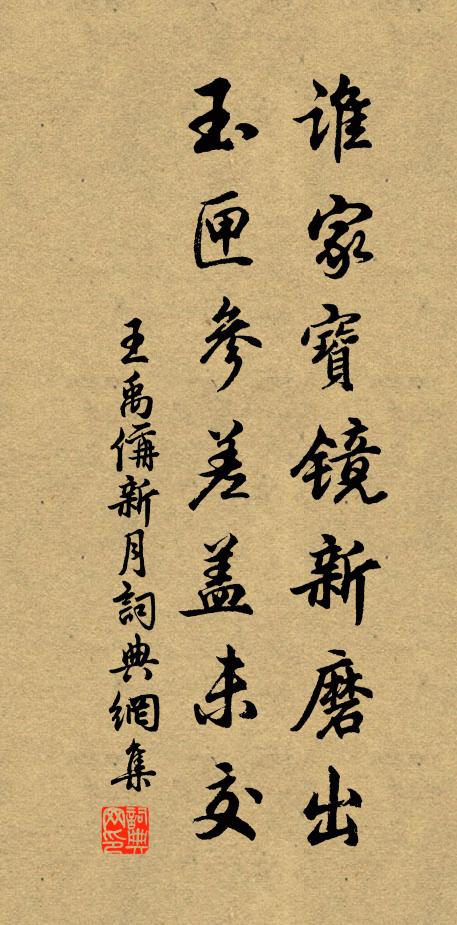 誰家寶鏡新磨出
玉匣參差盖未交
王禹偁新月詞典網集
詞典網印